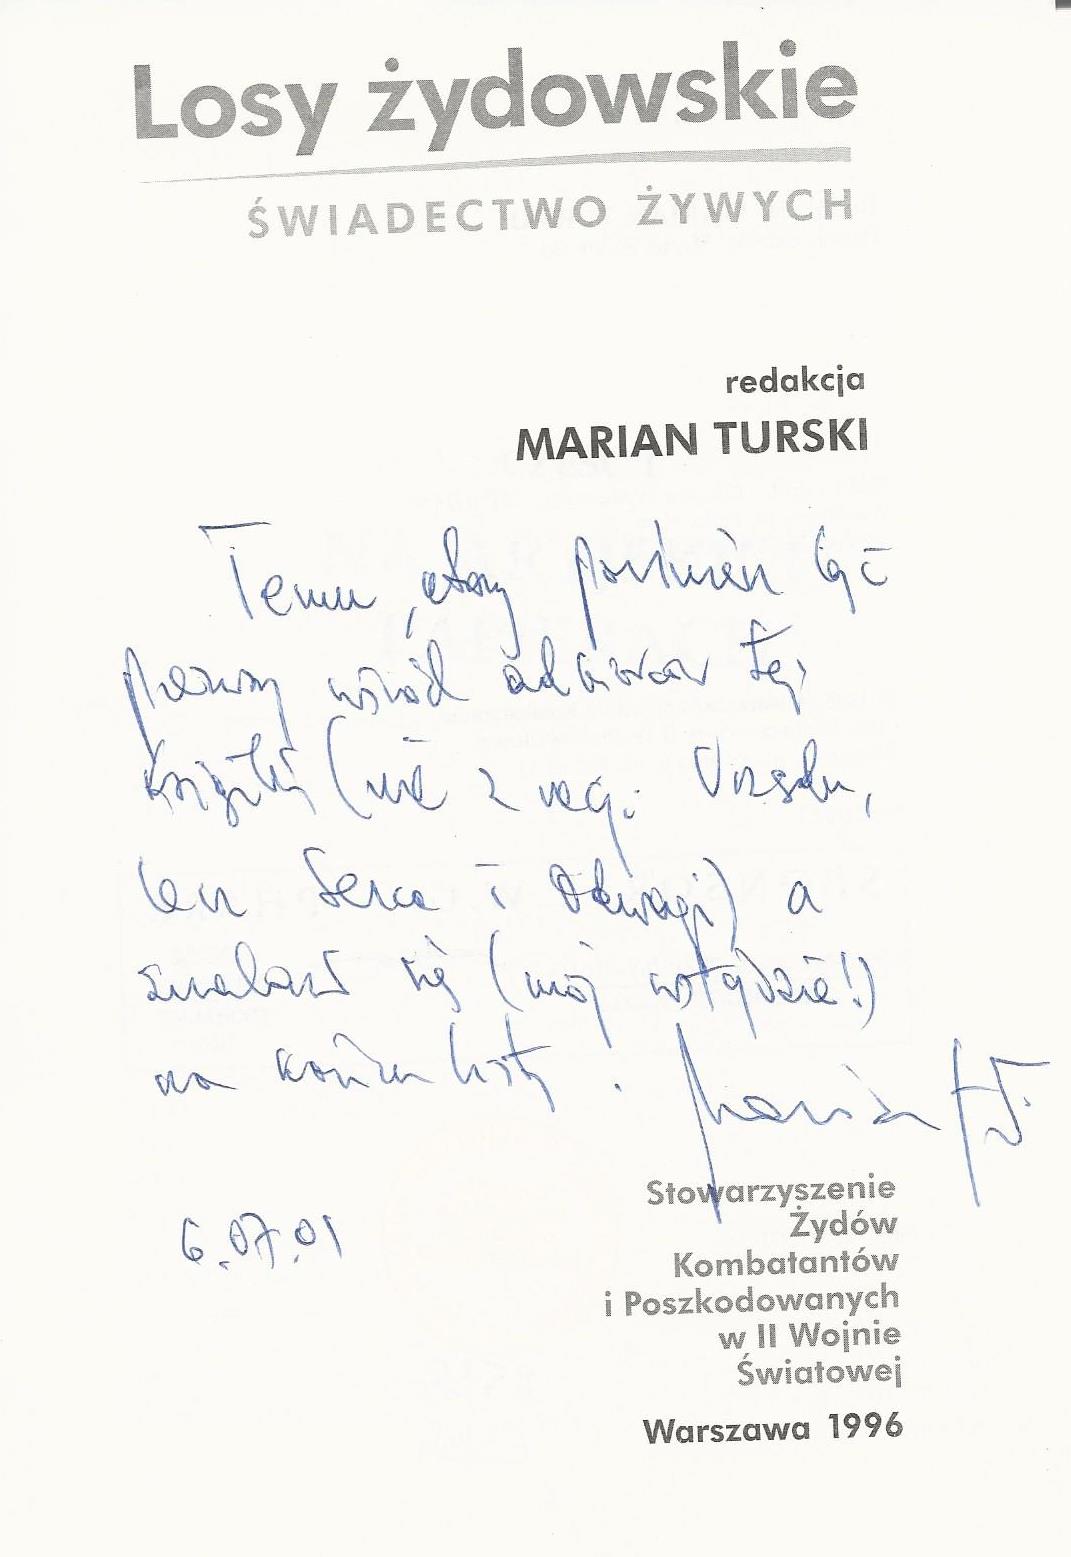 Losy żydowskie
ŚWIADECTWO ŻYWYCH
redakcja
MARIAN TURSKI
Temu, który powinien być
pierwszy wśród odbiorców tej
książki (nie z racji Urzędu,
lecz Serca i Odwagi) a
znalazł się (mój wstydzie!)
na końcu listy.
Marian
6.07.01
Stowarzyszenie
Żydów
Kombatantów
i Poszkodowanych
w II Wojnie
Światowej
Warszawa 1996